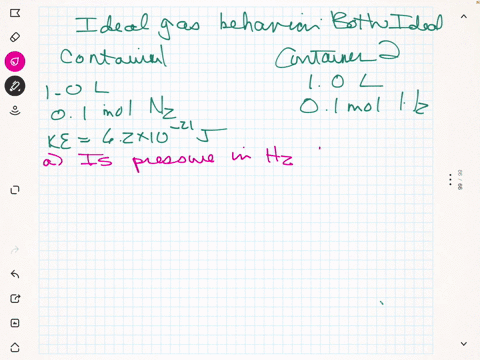 Ideal gas behavior Both Ideal
Container 2
1.0 L
1.0 L
0.1 mol N2
0.1 mol H2
KE = 6.2×10^-21 J
a) Is pressure in H2